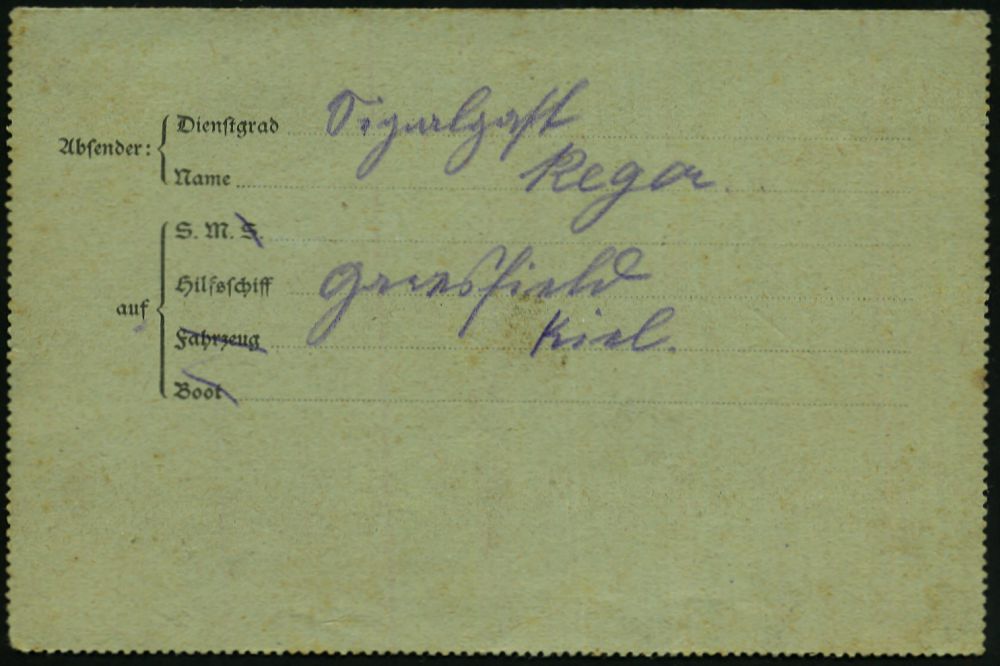 Absender:
Dienstgrad Signalgast
Name Reger.
auf
S. M. S.
Hilfsschiff
Fahrzeug Kiel.
Boot